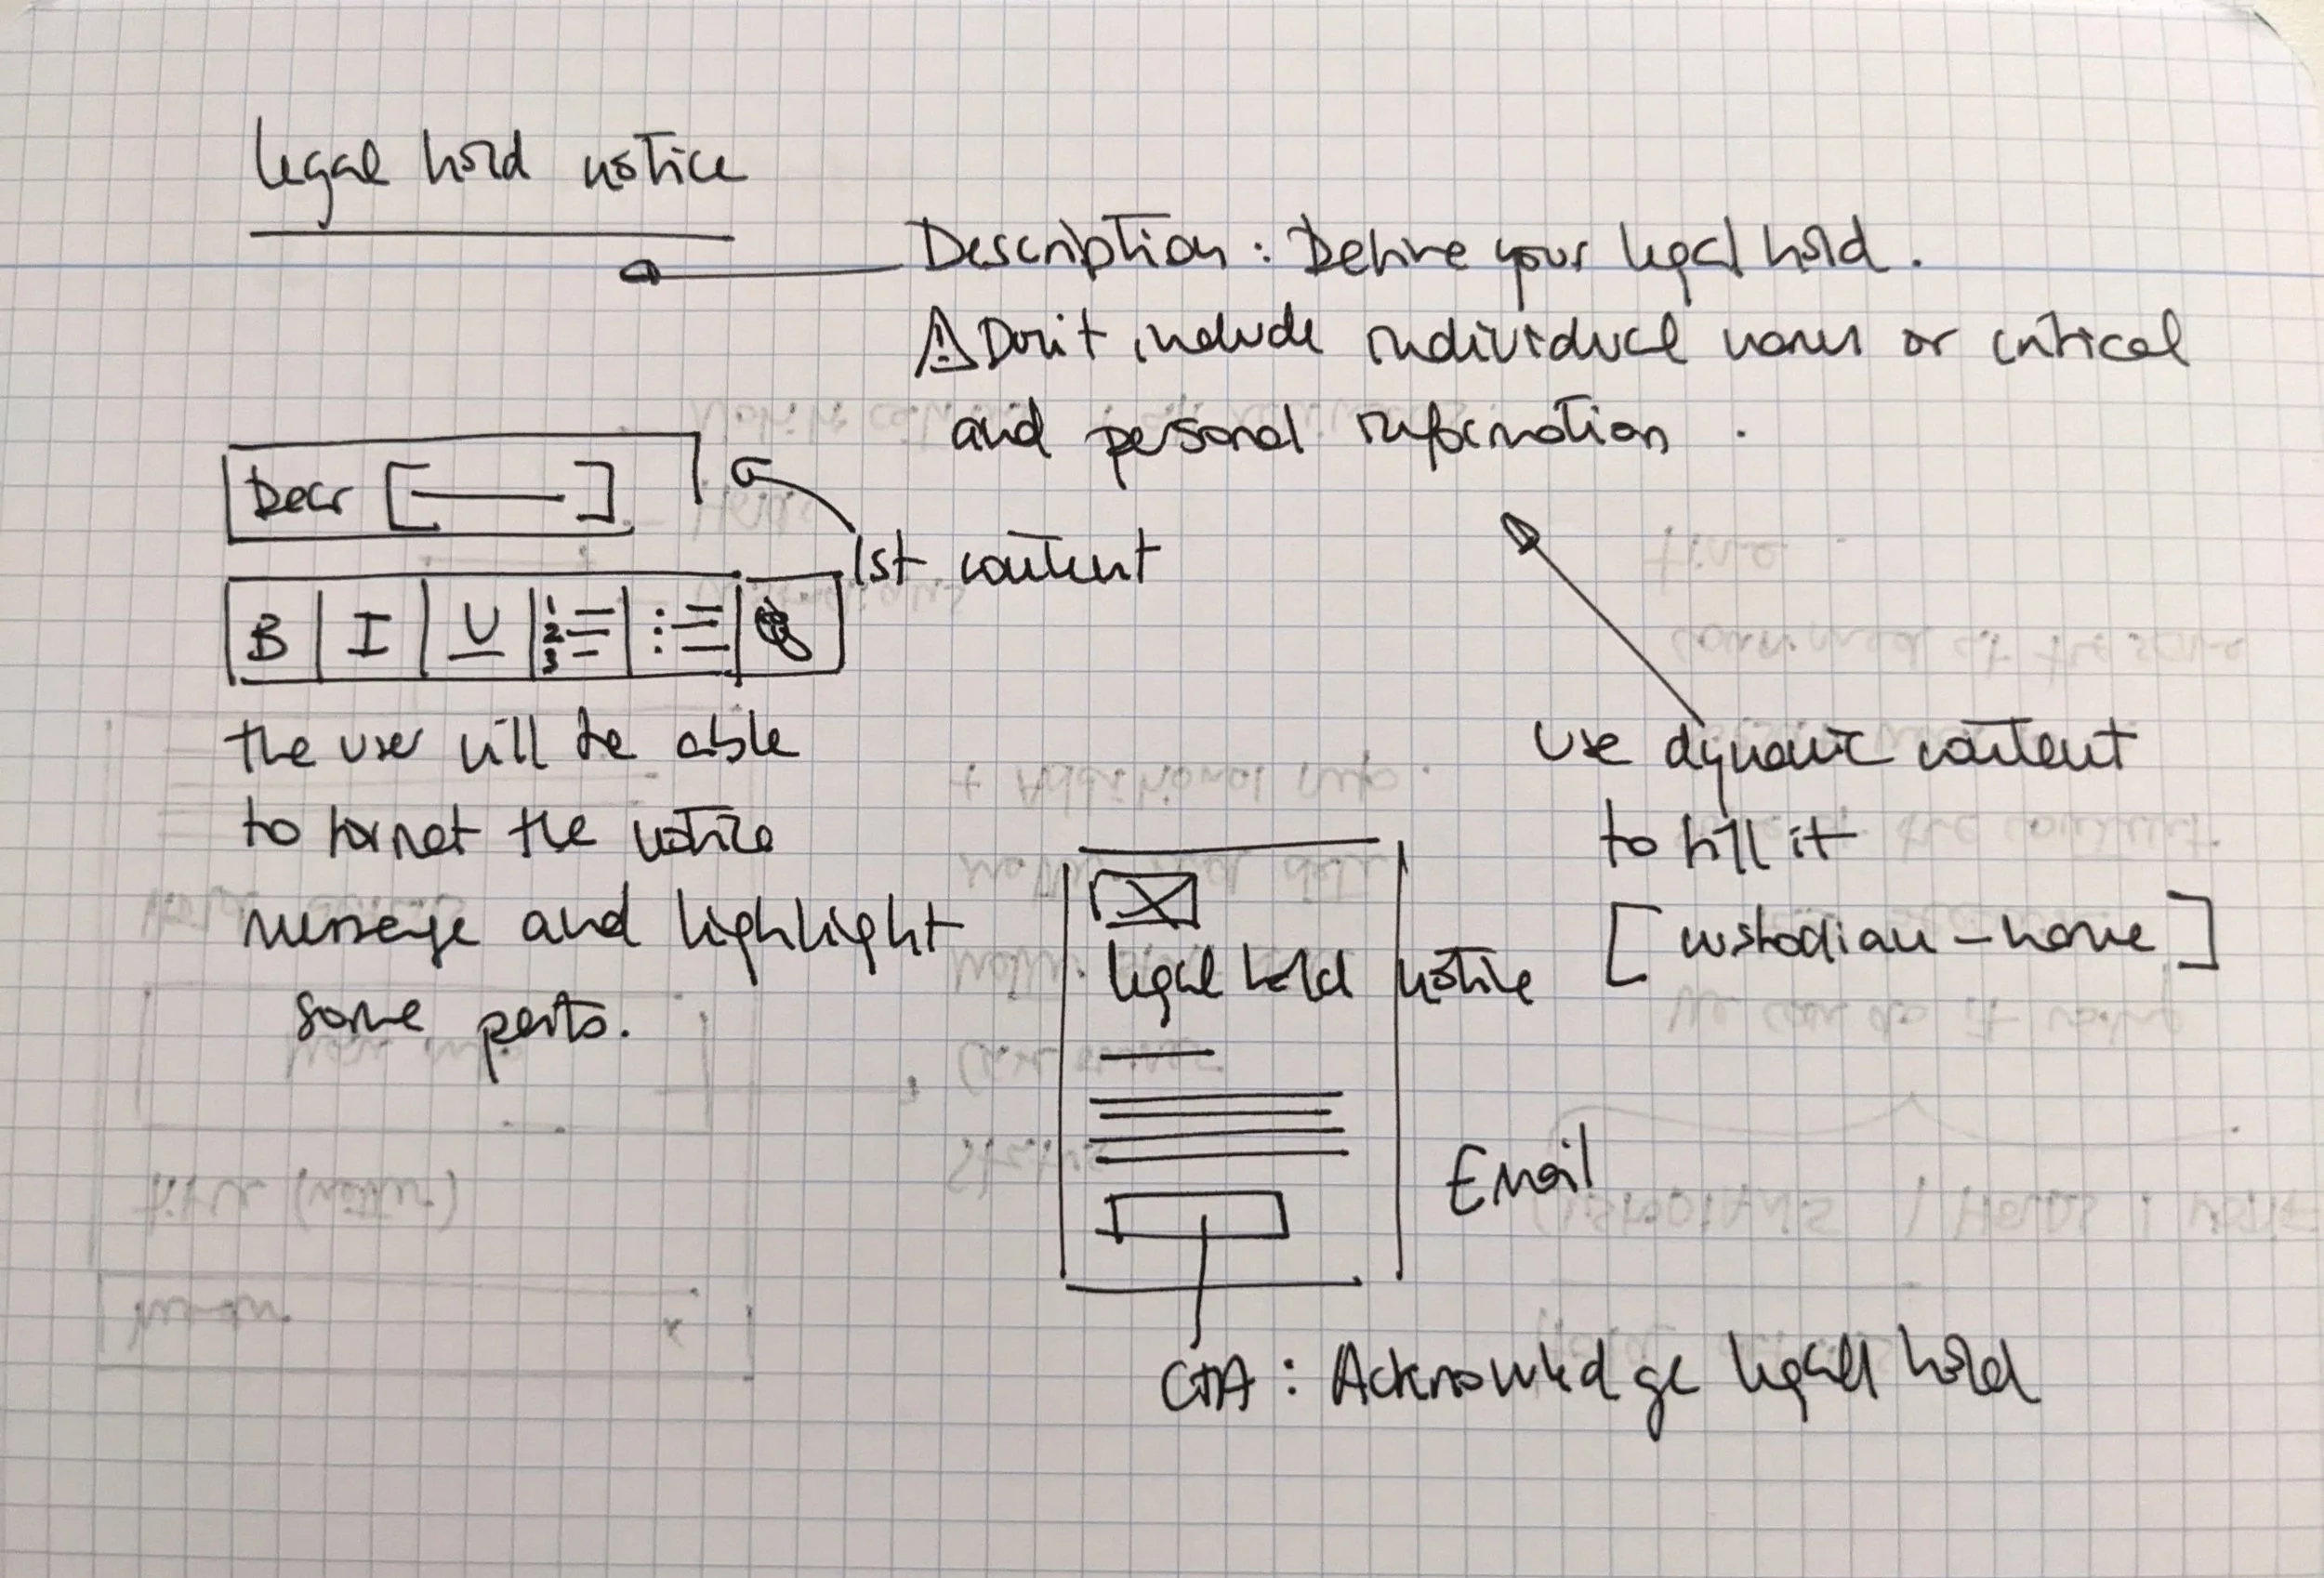 legal hold notice
Description : Define your legal hold.
⚠ Don't include individual names or critical
and personal information .
Dear [ ]
1st content
B I U 1 2 3
the user will be able
to format the notice
message and highlight
some parts.
Use dynamic content
to fill it
[custodian-name]
legal hold notice
Email
CTA : Acknowledge legal hold